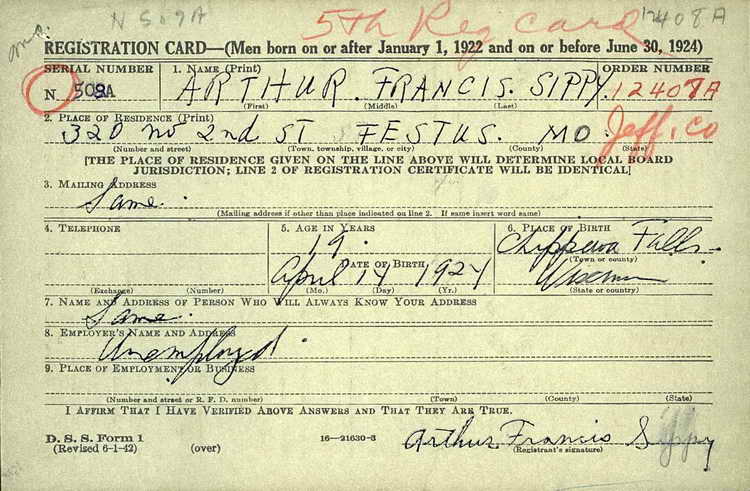 N 509A
5th Reg Card 12408A
REGISTRATION CARD—(Men born on or after January 1, 1922 and on or before June 30, 1924)
SERIAL NUMBER 1. NAME (Print) ORDER NUMBER
N. 509A ARTHUR. FRANCIS. SIPPY. 12408A
(First) (Middle) (Last)
2. PLACE OF RESIDENCE (Print)
320 No 2nd ST FESTUS. MO. Jeff. Co
(Number and street) (Town, township, village, or city) (County) (State)
[THE PLACE OF RESIDENCE GIVEN ON THE LINE ABOVE WILL DETERMINE LOCAL BOARD
JURISDICTION; LINE 2 OF REGISTRATION CERTIFICATE WILL BE IDENTICAL]
3. MAILING ADDRESS
Same.
(Mailing address if other than place indicated on line 2. If same insert word same)
4. TELEPHONE 5. AGE IN YEARS 6. PLACE OF BIRTH
19. Chippewa Falls
DATE OF BIRTH (Town or county)
April 14 1924
(Exchange) (Number) (Mo.) (Day) (Yr.) (State or country)
7. NAME AND ADDRESS OF PERSON WHO WILL ALWAYS KNOW YOUR ADDRESS
Same.
8. EMPLOYER'S NAME AND ADDRESS
Unemployed.
9. PLACE OF EMPLOYMENT OR BUSINESS
(Number and street or R. F. D. number) (Town) (County) (State)
I AFFIRM THAT I HAVE VERIFIED ABOVE ANSWERS AND THAT THEY ARE TRUE.
D. S. S. Form 1 16—21630-3 Arthur Francis Sippy
(Revised 6-1-42) (over) (Registrant's signature)